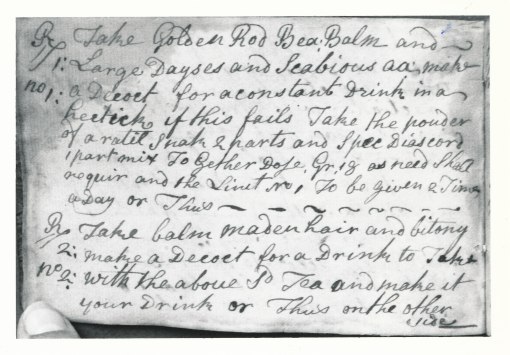 Rx Take Golden Rod Bea: Balm and
1: Large Dayses and Scabious aa: make
no 1: a Decoct for a constant Drink in a
hectick if this fails Take the powder
of a ratil Snak 2 parts and Spec Diascord
1 part mix To Gether Dose, Gr, 18 as need Shall
requir and the Linit No, 1, To be given 2 Times
a Day or Thus
Rx Take balm madenhair and bitony
2: make a Decoct for a Drink to Take
no 2: with the above Sd Tea and make it
your Drink or Thus on the other
side